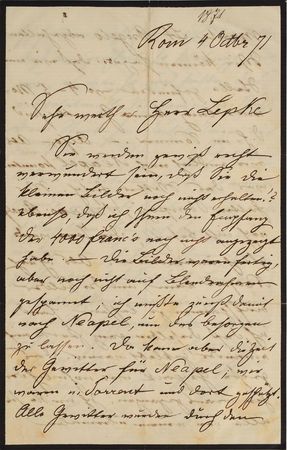 1871
Rom 4 Octbr 71
Sehr werth Herr Lepke
Sie werden gewiß recht
verwundert sein, daß Sie die
kleinen Bilder noch nicht erhalten?
ebenso, daß ich Ihnen den Empfang
der 4000 Francs noch nicht angezeigt
habe — Die Bilder waren fertig,
aber noch nicht auf Blendrahmen
gespannt; ich mußte zuerst damit
nach Neapel, um das besorgen
zu lassen. Da kam aber die Zeit
der Gewitter für Neapel; wir
waren in Sorrent und dort geschützt.
Alle Gewitter wurden durch den